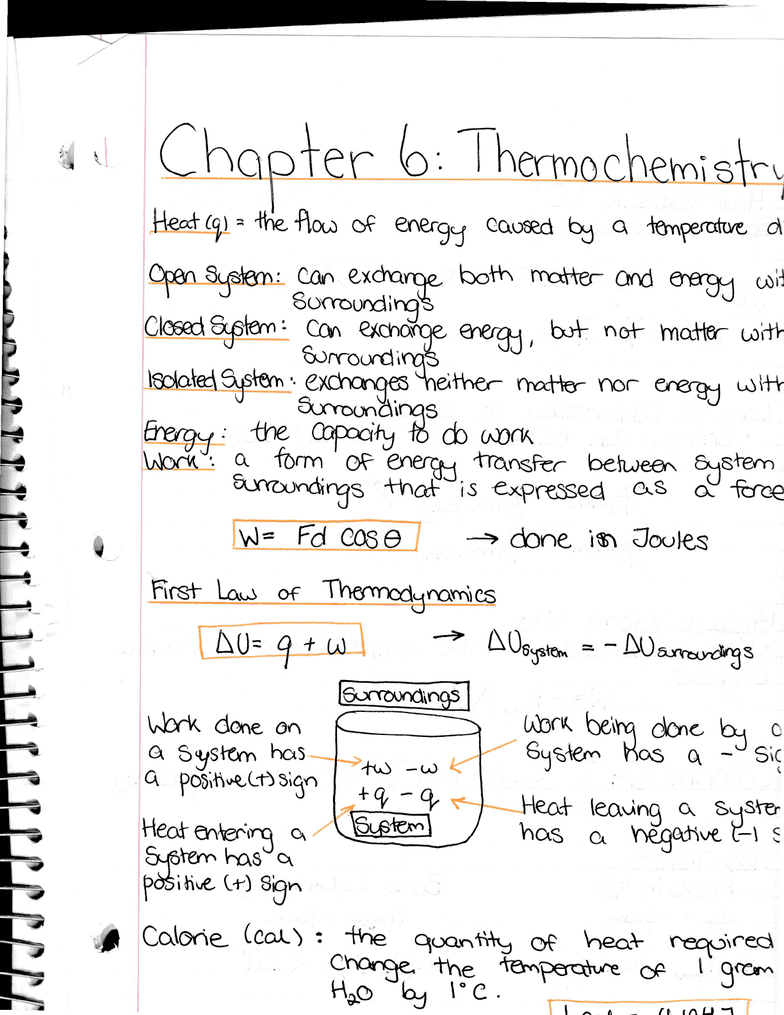 Chapter 6: Thermochemistry
Heat (q) = the flow of energy caused by a temperature
Open System: can exchange both matter and energy
surroundings
Closed System: can exchange energy, but not matter with
surroundings
Isolated System: exchanges neither matter nor energy with
surroundings
Energy: the capacity to do work
Work: a form of energy transfer between system
surroundings that is expressed as a force
W = Fd cos θ → done in Joules
First Law of Thermodynamics
ΔU = q + w → ΔUsystem = - ΔUsurroundings
Surroundings
Work done on
a system has
a positive (+) sign
Heat entering a
system has a
positive (+) sign
+w -w
+q -q
System
Work being done by
system has a -
Heat leaving a
has a negative (-)
Calorie (cal): the quantity of heat required
change the temperature of 1 gram
H₂O by 1°C.